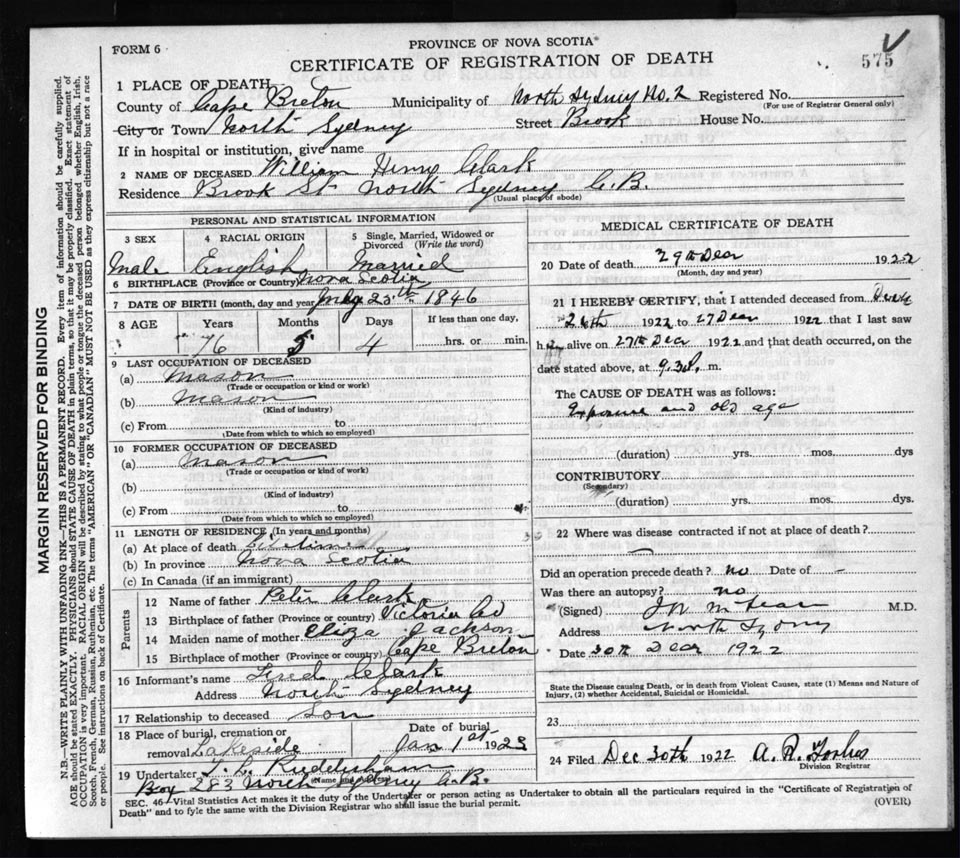 FORM 6
PROVINCE OF NOVA SCOTIA
CERTIFICATE OF REGISTRATION OF DEATH
575
1 PLACE OF DEATH
County of Cape Breton Municipality of North Sydney No. 2 Registered No.
(For use of Registrar General only)
City or Town North Sydney Street Brook House No.
If in hospital or institution, give name
2 NAME OF DECEASED William Henry Clark
Residence Brook St North Sydney C.B.
(Usual place of abode)
PERSONAL AND STATISTICAL INFORMATION
3 SEX 4 RACIAL ORIGIN 5 Single, Married, Widowed or Divorced (Write the word)
Male English Married
6 BIRTHPLACE (Province or Country) Nova Scotia
7 DATE OF BIRTH (month, day and year) 25th 1846
8 AGE Years Months Days If less than one day,
76 5 4 hrs. or min.
9 LAST OCCUPATION OF DECEASED
(a) Mason
(Trade or occupation or kind of work)
(b) Mason
(Kind of industry)
(c) From to
(Date from which to which so employed)
10 FORMER OCCUPATION OF DECEASED
(a) Mason
(Trade or occupation or kind of work)
(b)
(Kind of industry)
(c) From to
(Date from which to which so employed)
11 LENGTH OF RESIDENCE (In years and months)
(a) At place of death
(b) In province Nova Scotia
(c) In Canada (if an immigrant)
Parents
12 Name of father Peter Clark
13 Birthplace of father (Province or country) Victoria Co
14 Maiden name of mother Eliza Jackson
15 Birthplace of mother (Province or country) Cape Breton
16 Informant's name Fred Clark
Address North Sydney
17 Relationship to deceased Son
18 Place of burial, cremation or removal Lakeside Date of burial Jan 1st 1923
19 Undertaker
(Name and address)
Box 283 North Sydney C.B.
MEDICAL CERTIFICATE OF DEATH
20 Date of death 29th Decr 1922
(Month, day and year)
21 I HEREBY CERTIFY, that I attended deceased from Decr
26th 1922 to 27 Decr 1922 that I last saw
h alive on 27th Decr 1922 and that death occurred, on the
date stated above, at 9.30 m.
The CAUSE OF DEATH was as follows:
Exposure and old age
(duration) yrs. mos. dys
CONTRIBUTORY
(Secondary)
(duration) yrs. mos. dys.
22 Where was disease contracted if not at place of death?
Did an operation precede death? no Date of -
Was there an autopsy? no
(Signed) M.D.
Address North Sydney
Date 30th Decr 1922
State the Disease causing Death, or in death from Violent Causes, state (1) Means and Nature of
Injury, (2) whether Accidental, Suicidal or Homicidal.
23
24 Filed Dec 30th 1922 A. R. Forbes
Division Registrar
SEC. 46—Vital Statistics Act makes it the duty of the Undertaker or person acting as Undertaker to obtain all the particulars required in the "Certificate of Registration of
Death" and to fyle the same with the Division Registrar who shall issue the burial permit.
(OVER)
MARGIN RESERVED FOR BINDING
N.B.—WRITE PLAINLY WITH UNFADING INK—THIS IS A PERMANENT RECORD. Every item of information should be carefully supplied.
AGE should be stated EXACTLY. PHYSICIANS should STATE CAUSE OF DEATH in plain terms, so that it may be properly classified. Exact statement of
OCCUPATION is very important. RACIAL ORIGIN will be described by stating to what people or tongue the deceased person belonged whether English, Irish,
Scotch, French, German, Russian, Ruthenian, etc. The terms "AMERICAN" OR "CANADIAN" MUST NOT BE USED as they express citizenship but not a race
or people. See instructions on back of Certificate.